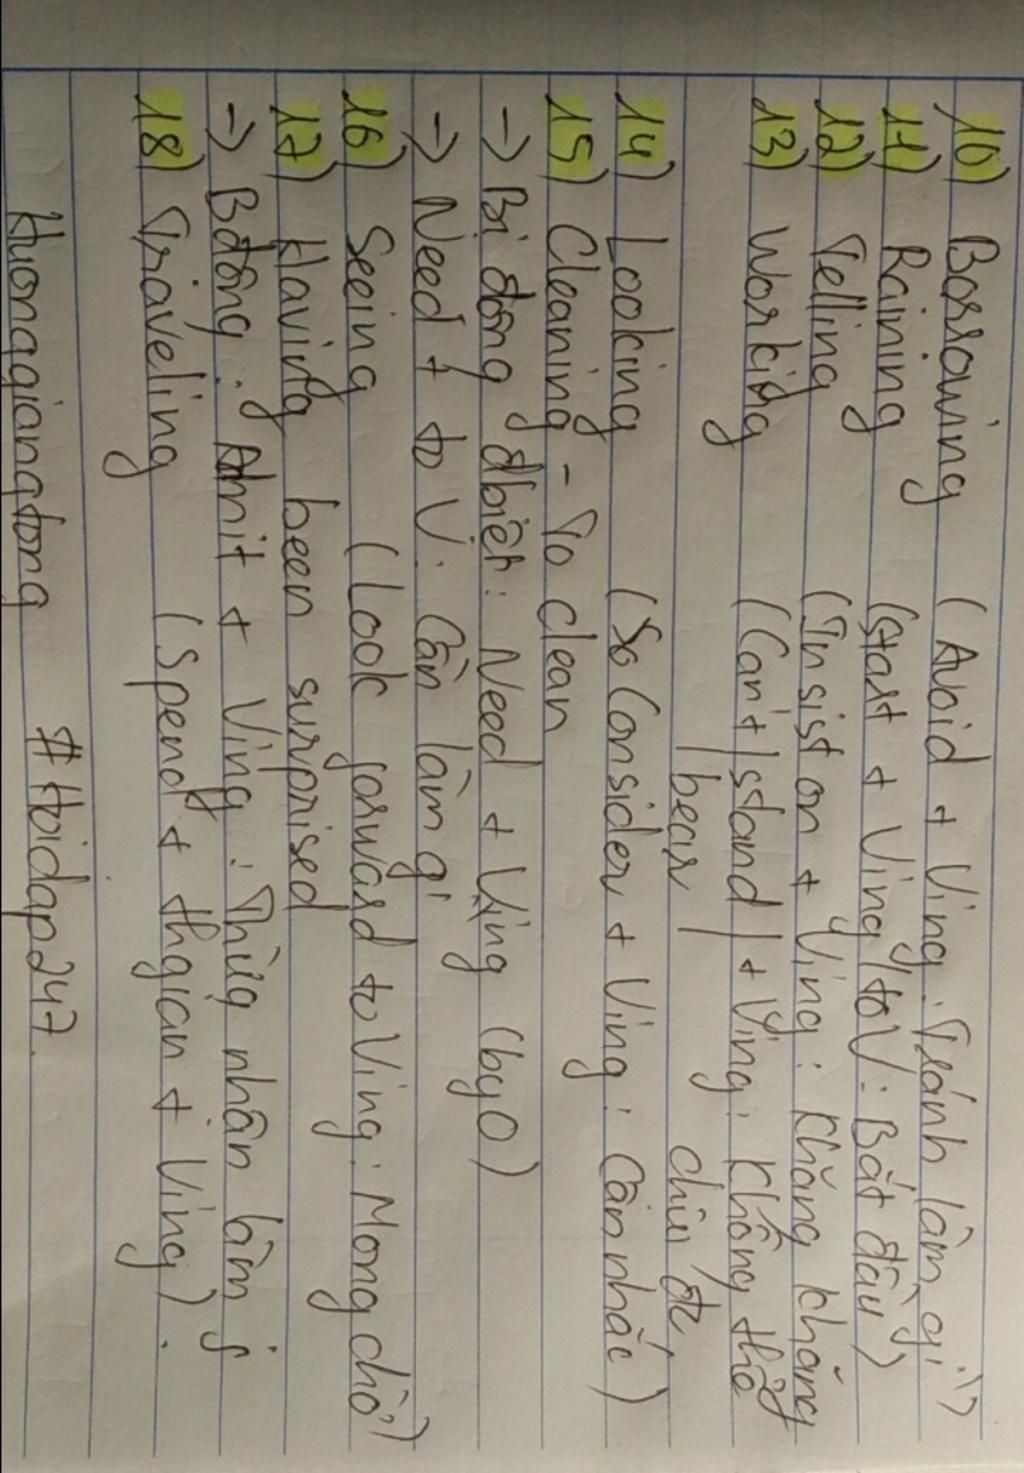 10) Borrowing (Avoid + Ving: Tránh làm gì)
11) Raining (start + Ving/to V: Bắt đầu)
12) Telling (Insist on + Ving: Khăng khăng
13) Working (Can't | stand | + Ving: Không thể
| bear | chịu đc
14) Looking (So Consider + Ving: Cân nhắc)
15) Cleaning - To clean
-> Bị động đbiệt: Need + Ving (by O)
-> Need + to V: Cần làm gì
16) Seeing (Look forward to Ving: Mong chờ)
17) Having been surprised
-> Bđộng: Admit + Ving: Thừa nhận làm j
18) Traveling (Spend + thgian + Ving).
Huonggiangtong #Hoidap247.